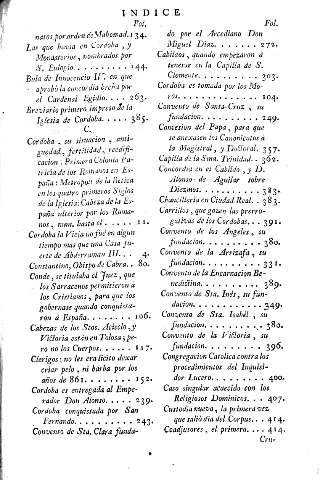 INDICE
Fol.
natos por orden de Mahomad. 134.
Las que havia en Cordoba, y
Monasterios, nombrados por
S. Eulogio. . . . . . . . . 144.
Bula de Innocencio IV. en que
aprobó la concordia hecha por
el Cardenal Egidio. . . . 263.
Breviario primero impreso de la
Iglesia de Cordoba. . . . . 385.
C.
Cordoba, su situacion, anti-
guedad, fertilidad, reedifi-
cacion: Primera Colonia Pa-
tricia de los Romanos en Es-
paña: Metropoli de la Betica
en los quatro primeros Siglos
de la Iglesia: Cabeza de la Es-
paña ulterior por los Roma-
nos, num. hasta el . . . . . 11.
Cordoba la Vieja no fué en algun
tiempo mas que una Casa fu-
erte de Abderraman III. . . 4.
Constantino, Obispo de Cabra. . 80.
Conde, se titulaba el Juez, que
los Sarracenos permitieron à
los Cristianos, para que los
gobernase quando conquista-
ron á España. . . . . . . 106.
Cabezas de los Stos. Acisclo, y
Victoria estén en Tolosa; pe-
ro no los Cuerpos. . . . . 117.
Clerigos: no les era licito dexar
criar pelo, ni barba por los
años de 861. . . . . . . . 152.
Cordoba es entregada al Empe-
rador Don Alonso. . . . . 239.
Cordoba conquistada por San
Fernando. . . . . . . . . 243.
Convento de Sta. Clara funda-
Fol.
do por el Arcediano Don
Miguel Diaz. . . . . . . 272.
Cabildos, quando empezaron á
tenerse en la Capilla de S.
Clemente. . . . . . . . . 303.
Cordoba es tomada por los Mo-
ros. . . . . . . . . . . 104.
Convento de Santa Cruz, su
fundacion. . . . . . . . . 249.
Concesion del Papa, para que
se anexasen los Canonicatos à
la Magistral, y Doctoral. 357.
Capilla de la Sma. Trinidad. . 362.
Concordia en el Cabildo, y D.
Alonso de Aguilar sobre
Diezmos. . . . . . . . . 383.
Chancilleria en Ciudad Real. . 383.
Carrillos, que gozen las prerro-
gativas de los Cordobas. . 391.
Convento de los Angeles, su
fundacion. . . . . . . . . 380.
Convento de la Arrizafa, su
fundacion. . . . . . . . . 331.
Convento de la Encarnacion Be-
nedictina. . . . . . . . . 389.
Convento de Sta. Inés, su fun-
dacion. . . . . . . . . . 249.
Convento de Sta. Isabél, su
fundacion. . . . . . . . . 380.
Convento de la Victoria, su
fundacion. . . . . . . . . 396.
Congregacion Catolica contra los
procedimientos del Inquisi-
dor Lucero. . . . . . . . 400.
Caso singular acaecido con los
Religiosos Dominicos. . . 407.
Custodia nueva, la primera vez
que salió dia del Corpus. . . 414.
Coadjutores, el primero. . . . 414.
Cru-